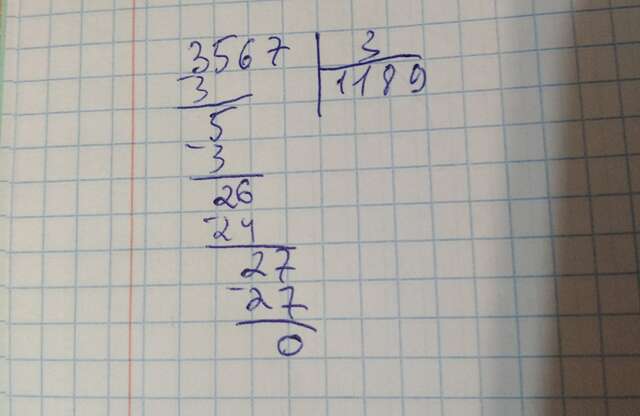 3567 3
-3 1189
5
-3
26
-24
27
-27
0